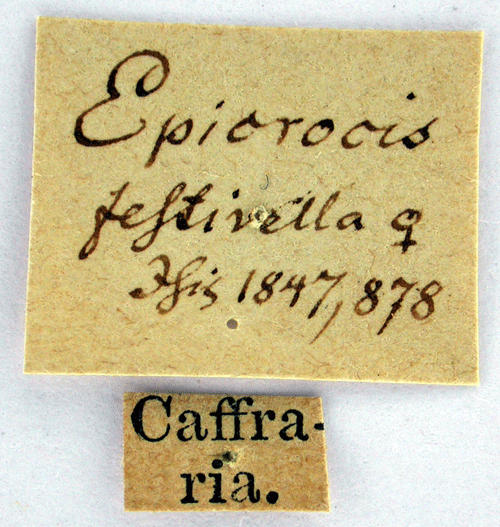 Epicrocis
festivella ♀
Isis 1847, 878
Caffra-
ria.